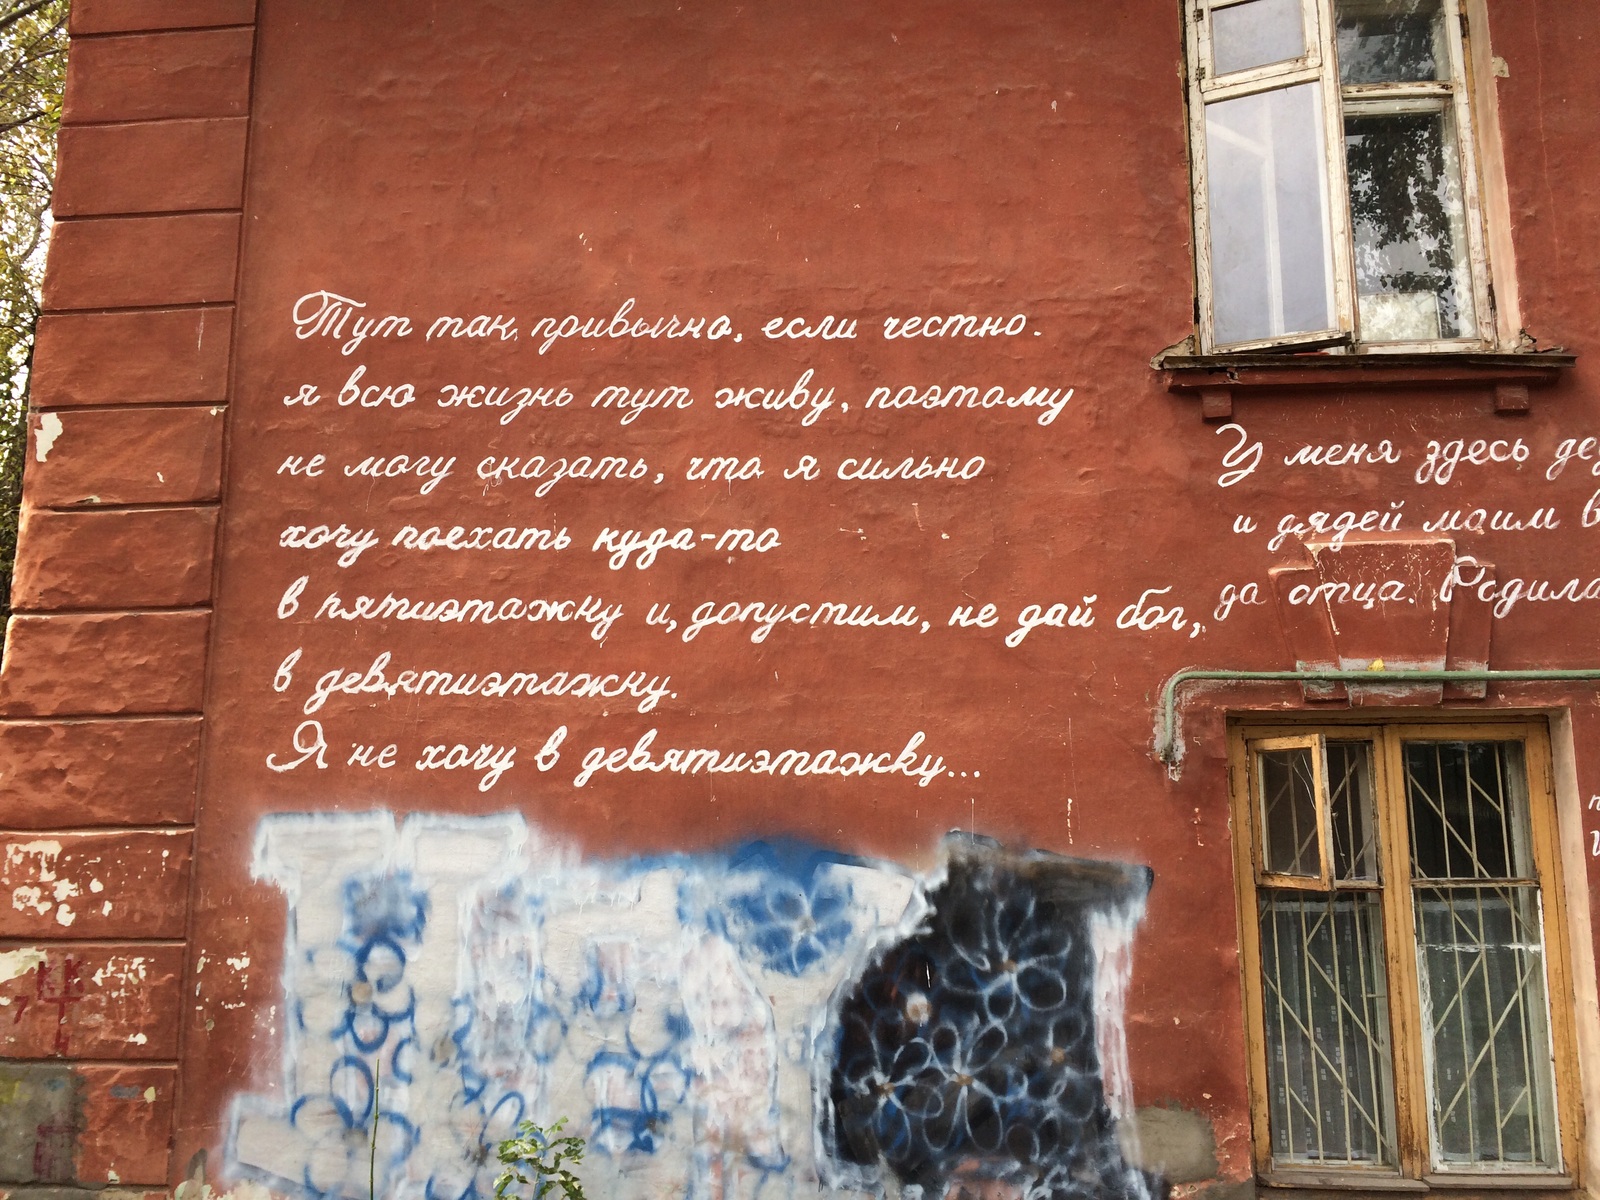 Тут так привычно, если честно.
я всю жизнь тут живу, поэтому
не могу сказать, что я сильно
хочу поехать куда-то
в пятиэтажку и, допустим, не дай бог,
в девятиэтажку.
Я не хочу в девятиэтажку...
У меня здесь дед
и дядей моим в
да отца. Родила
КК
7 Т